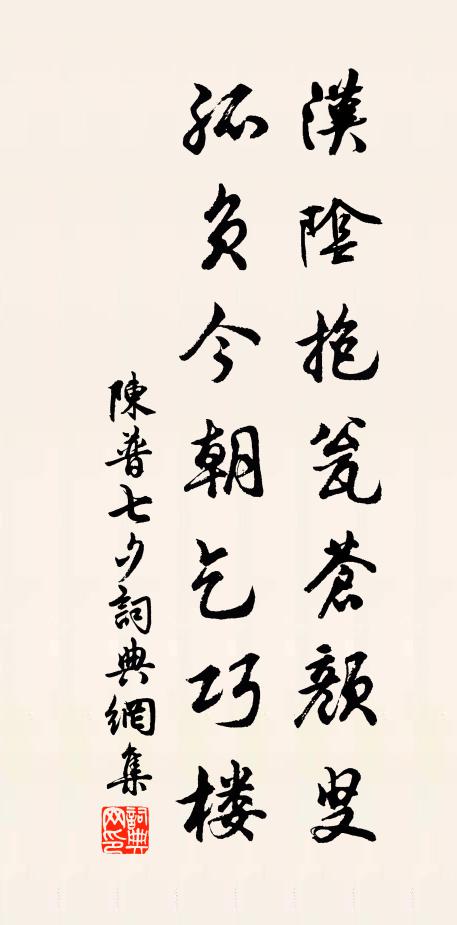 漢陰抱瓮蒼顔叟
孤負今朝乞巧楼
陳普七夕詞典網集
詞典網印